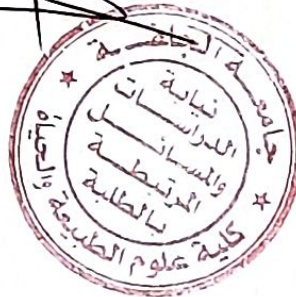 جامعة الجلفة
نيابة
الدراسات
والمسائل
المرتبطة
بالطلبة
كلية علوم الطبيعة والحياة